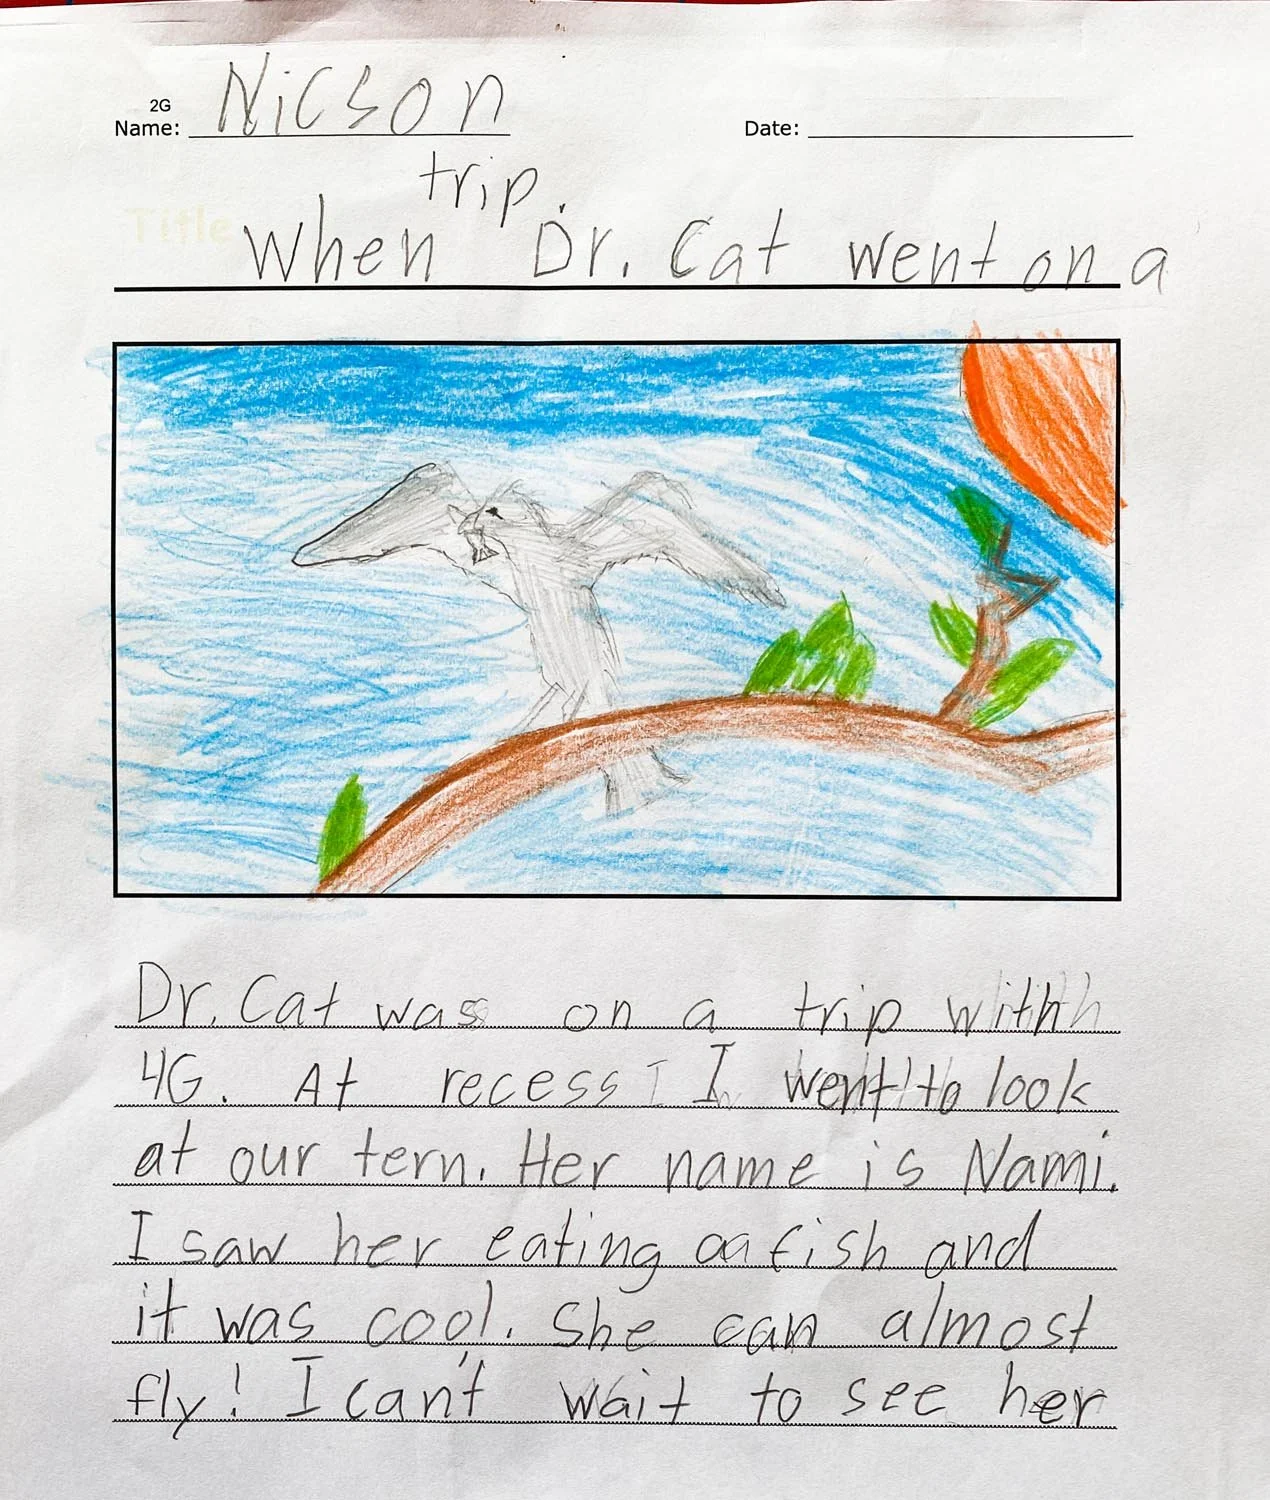 2G
Name: Nicson
Date:
Title
trip.
When Dr. Cat went on a
Dr. Cat was on a trip with
4G. At recess I went to look
at our tern. Her name is Nami.
I saw her eating aa fish and
it was cool. She can almost
fly! I can't wait to see her